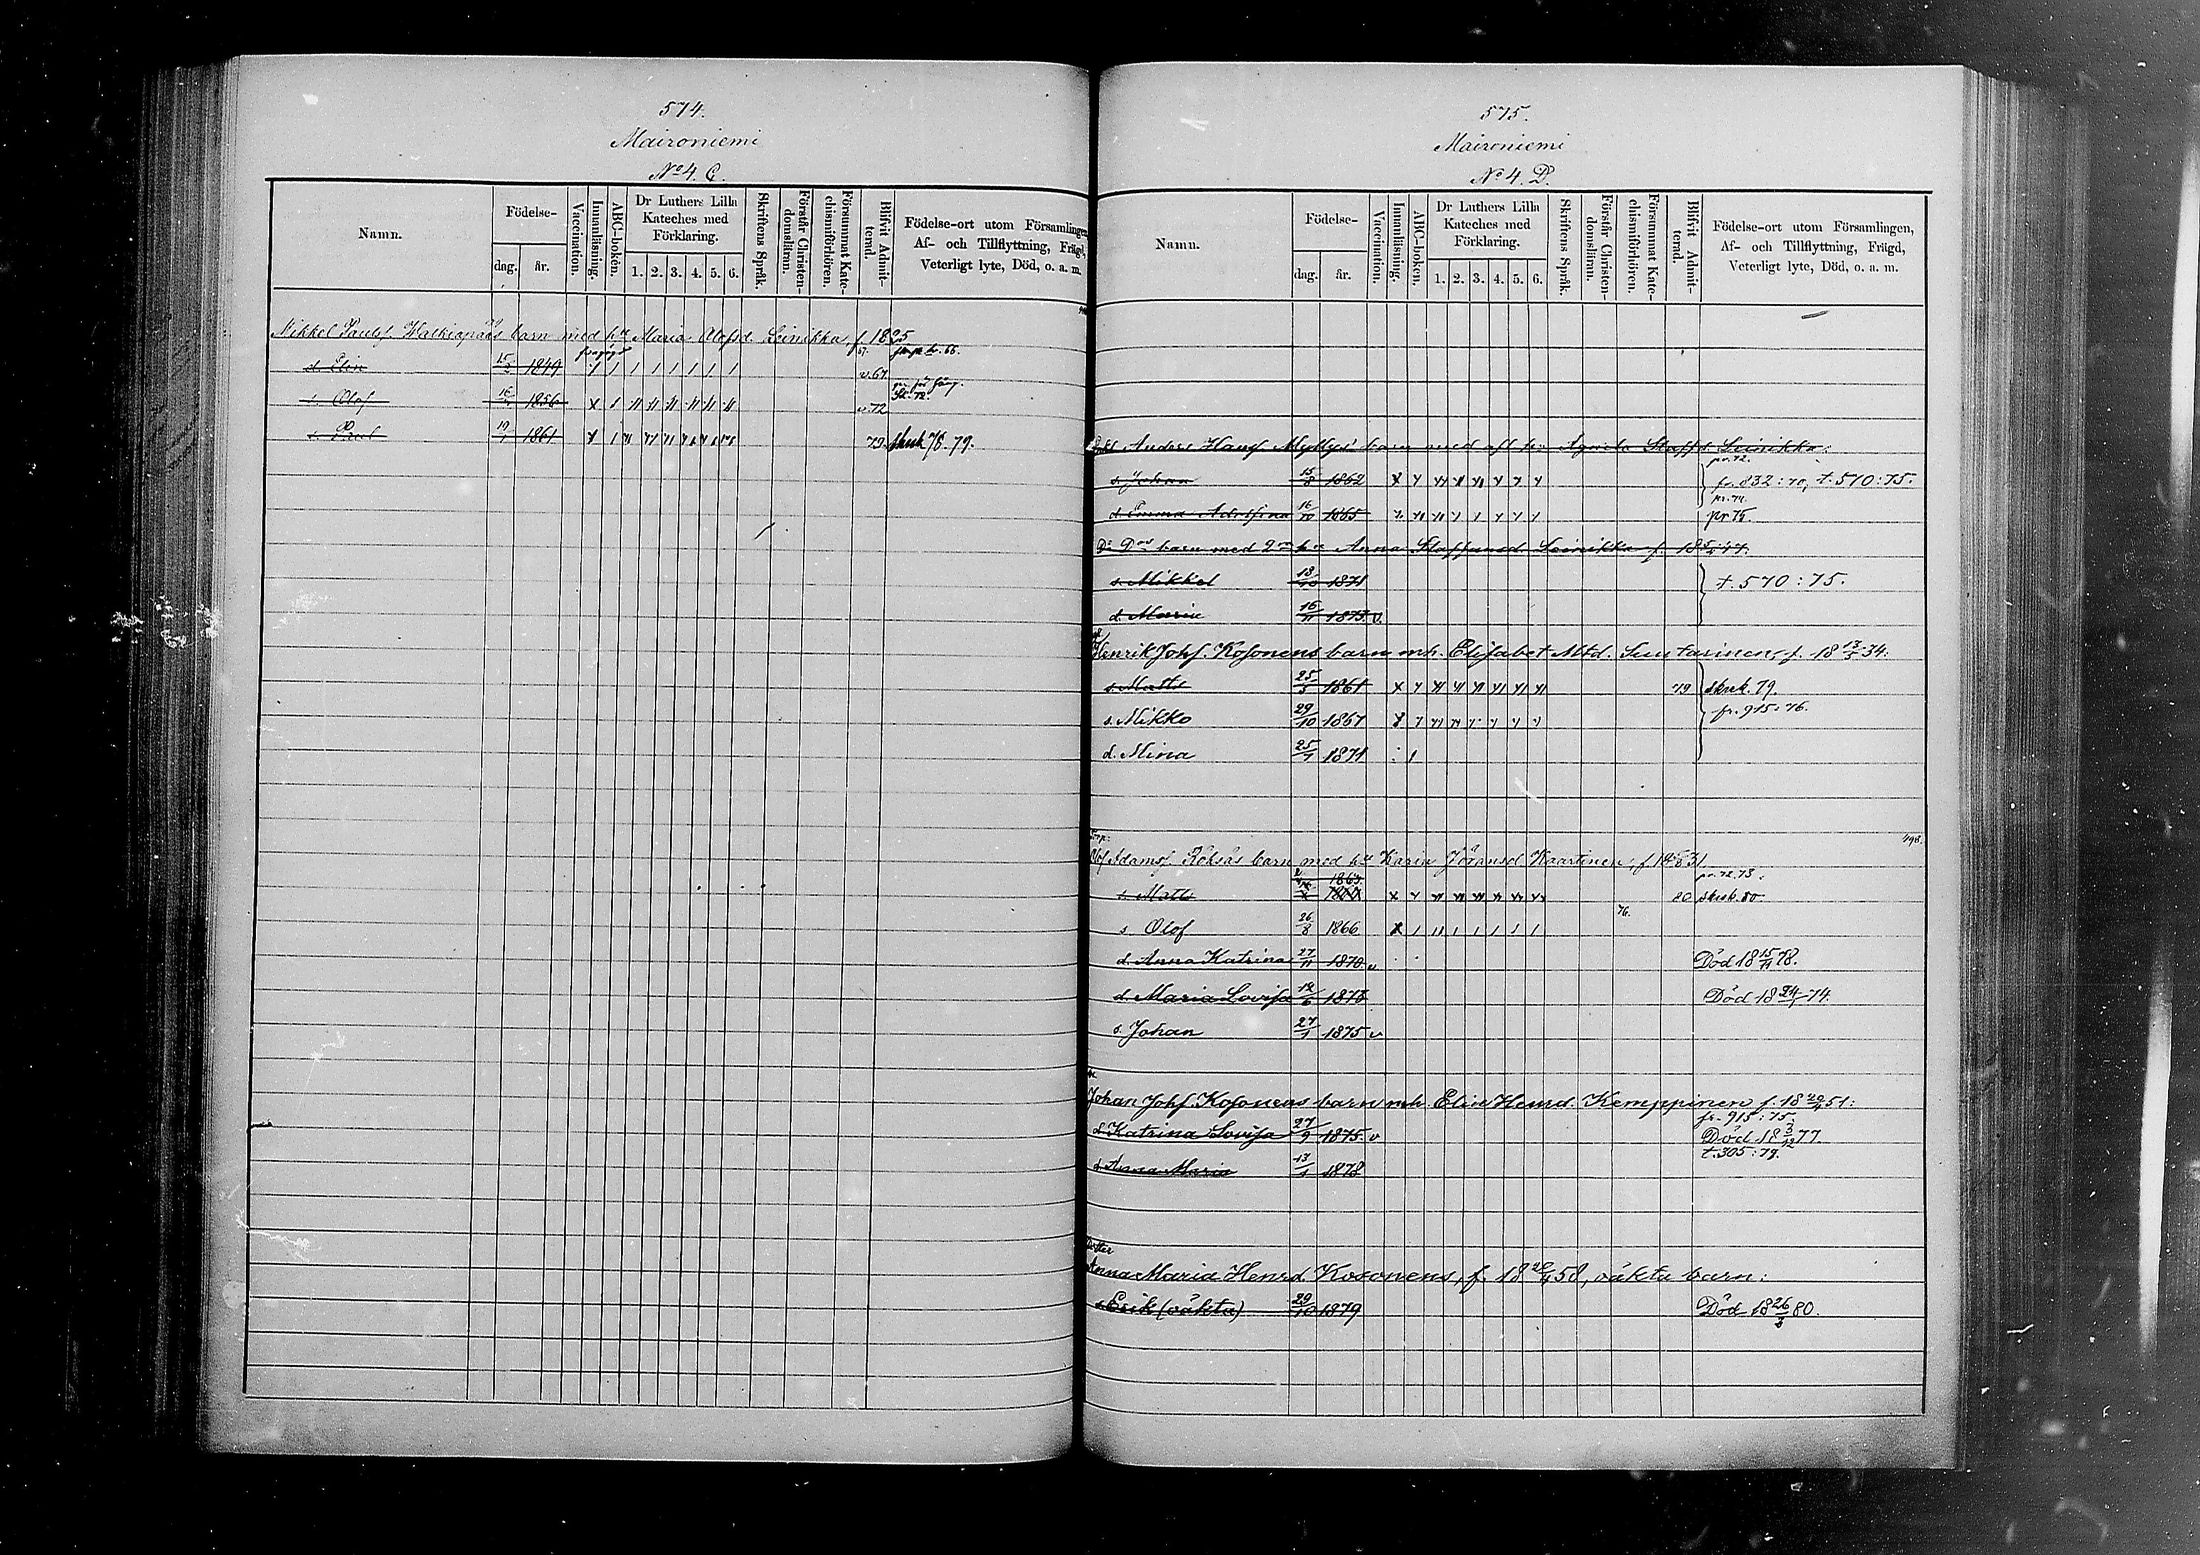 574.
Maironiemi
No 4. C.
Namn.
Födelse-
dag.
år.
Vaccination.
Innanläsning.
ABC-boken.
Dr Luthers Lilla Kateches med Förklaring.
1. 2. 3. 4. 5. 6.
Skriftens Språk.
Förstår Christendomsläran.
Försummat Katechismiförhören.
Blifvit Admitterad.
Födelse-ort utom Församlingen, Af- och Tillflyttning, Frägd, Veterligt lyte, Död, o. a. m.
Mikkel Paulsf. barn med hu Maria Olofsd. Leinikka, f. 1825
d. Elin 15/2 1849 v. 67
s. Olof 1856 v. 72
s. Paul 19/1 1861 79. skrsk 78. 79.
575.
Maironiemi
No 4. D.
Namn.
Födelse-
dag.
år.
Vaccination.
Innanläsning.
ABC-boken.
Dr Luthers Lilla Kateches med Förklaring.
1. 2. 3. 4. 5. 6.
Skriftens Språk.
Förstår Christendomsläran.
Försummat Katechismiförhören.
Blifvit Admitterad.
Födelse-ort utom Församlingen, Af- och Tillflyttning, Frägd, Veterligt lyte, Död, o. a. m.
Anders Hansf. barn med afl. hu Agneta Staffd. Leinikka:
pr. 72.
s. Johan 15/8 1862 fr. 832: 70, t. 570: 75.
pr. 74.
d. Emma Adolfina 16/10 1865 pr 75.
Ds Dos barn med 2dra hu Anna Staffansd. Leinikka f.
s. Mikkel 18/10 1871 t. 570: 75.
d. Maria 16/11 1873. v.
Henrik Johf. Kosonens barn mh. Elisabet Mtd. Suutarinen, f. 18 17/3 34:
s. Matts 25/3 1861 79 skrsk. 79.
s. Mikko 29/10 1867 fr. 915: 76.
d. Mina 25/7 1871
Torp:
498.
Olof Adamsf. barn med hu Karin Jöransd Kaartinen, f.
1863. pr. 72. 73.
s. Matts 80 skrsk. 80.
76.
s Olof 26/8 1866
d. Anna Katrina 27/11 1870. v Död 18 15/11 78.
d. Maria Lovisa 12/6 1873 Död 18 24/1 74.
s. Johan 27/1 1875 v
Johan Johf. Kosonens barn mh. Elin Henrd. Kemppinen f. 18 20/4 51:
fr. 915: 75.
d. Katrina Lovisa 27/9 1875. v Död 18 3/12 77.
t. 305: 79.
d. Anna Maria 13/1 1878
Dotter
Anna Maria Henrd. Kosonens, f. 18 28/4 58, oäkta barn:
s. Erik (oäkta) 29/10 1879 Död 18 26/3 80.